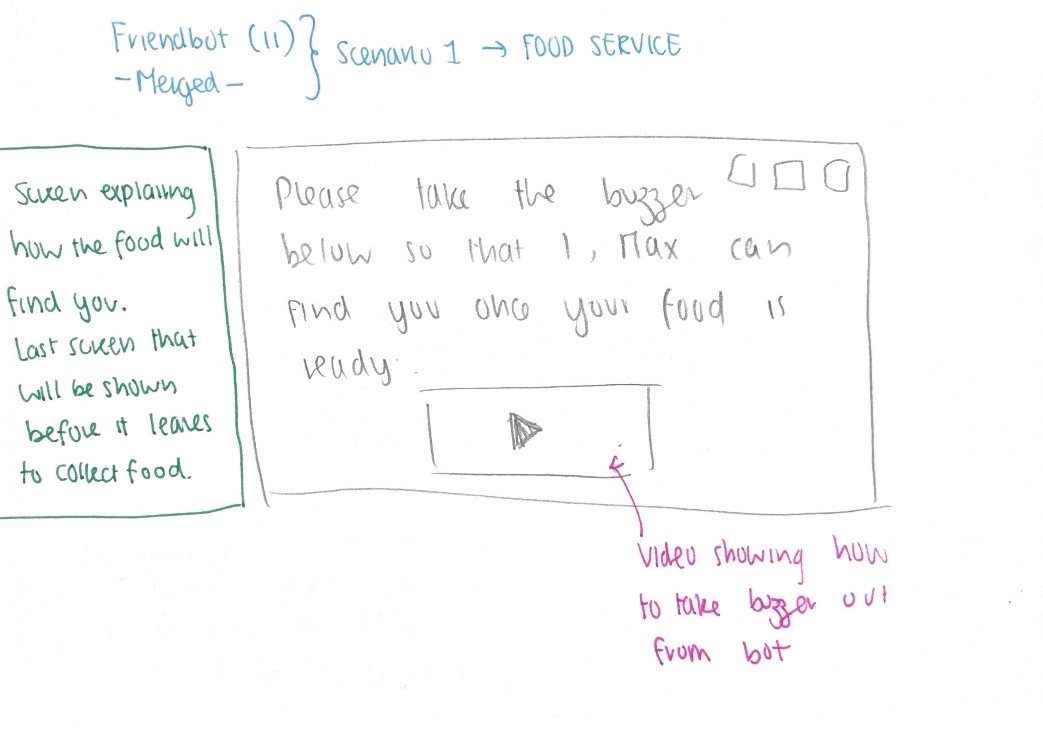 Friendbot (11)
-Merged-
Scenario 1 → FOOD SERVICE
Screen explaining
how the food will
find you.
Last screen that
will be shown
before it leaves
to collect food.
Please take the buzzer
below so that I, Max can
find you once your food is
ready.
Video showing how
to take buzzer out
from bot